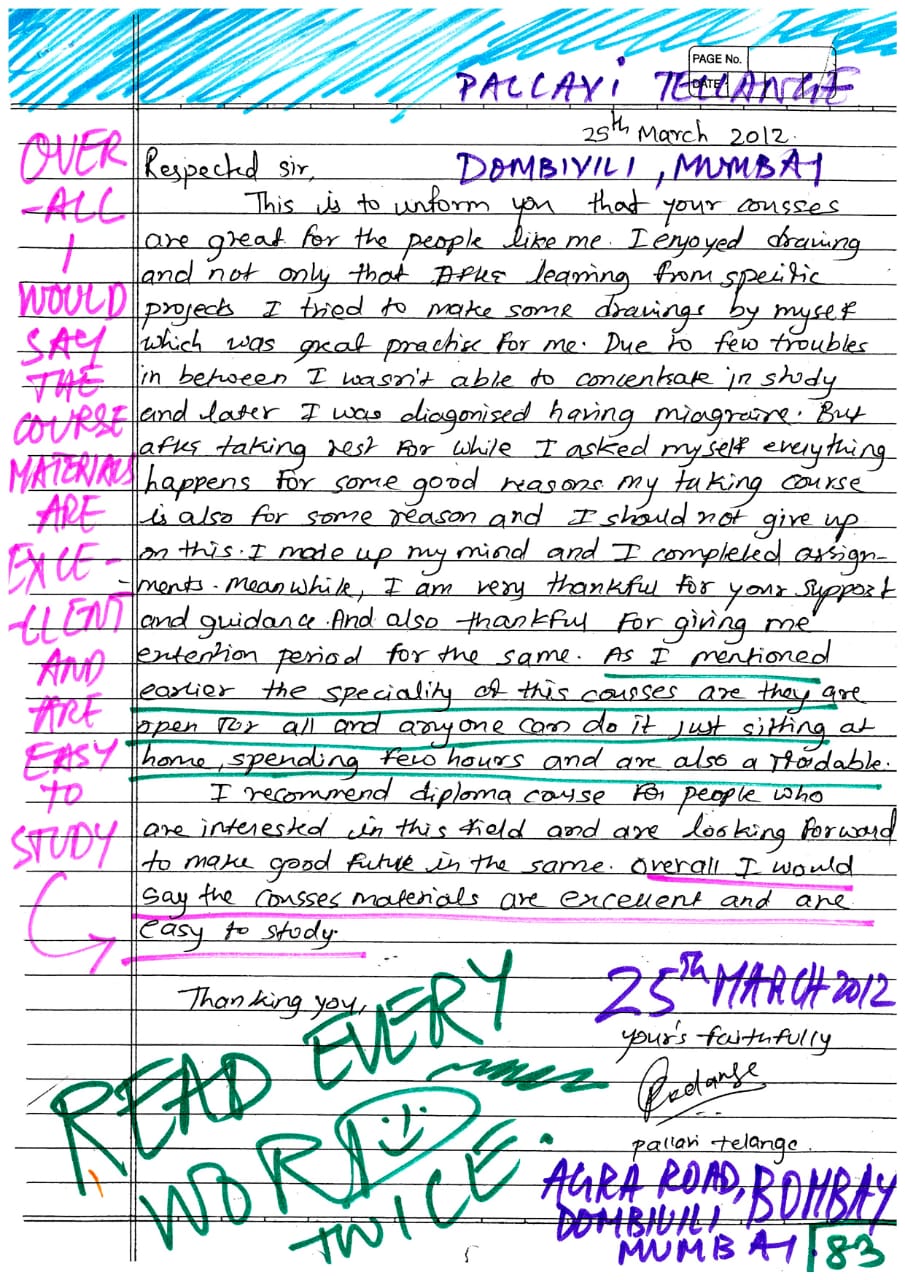 PAGE No.
DATE
PALLAVI TELLANGE
25th March 2012.
Respected sir,
DOMBIVILI, MUMBAI
This is to unform you that your cousses
are great for the people like me. I enjoyed drawing
and not only that After learning from specific
projects I tried to make some drawings by myself
which was great practise for me. Due to few troubles
in between I wasn't able to concentrate in study
and later I was diagonised having miagraine. But
after taking rest for while I asked myself everything
happens for some good reasons my taking course
is also for some reason and I should not give up
on this. I made up my mind and I completed assign-
ments. Meanwhile, I am very thankful for your support
and guidance. And also thankful for giving me
extention period for the same. As I mentioned
earlier the speciality of this cousses are they are
open for all and anyone can do it just sitting at
home, spending few hours and are also affordable.
I recommend diploma course for people who
are interested in this field and are looking forward
to make good future in the same. Overall I would
say the cousses materials are excellent and are
easy to study.
Thanking you,
OVER
-ALL
I
WOULD
SAY
THE
COURSE
MATERIALS
ARE
EXCE-
-LLENT
AND
ARE
EASY
TO
STUDY
25th MARCH 2012
your's faithfully
pallavi telange.
READ EVERY
WORD
TWICE.
AGRA ROAD, BOMBAY
DOMBIVILI
MUMBAI
83